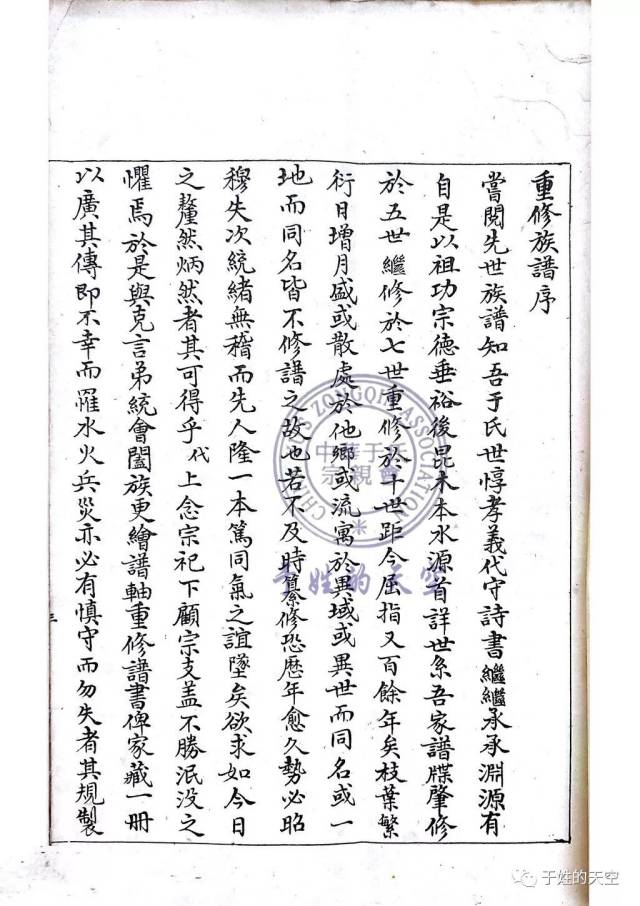 重修族譜序
嘗閱先世族譜知吾于氏世惇孝義代守詩書繼繼承承淵源有
自是以祖功宗德垂裕後昆木本水源首詳世系吾家譜牒肇修
於五世繼修於七世重修於十世距今屈指又百餘年矣枝葉繁
衍日增月盛或散處於他鄉或流寓於異域或異世而同名或一
地而同名皆不修譜之故也若不及時纂修恐歷年愈久勢必昭
穆失次統緒無稽而先人隆一本篤同氣之誼墜矣欲求如今日
之釐然炳然者其可得乎代上念宗祀下顧宗支盖不勝泯没之
懼焉於是與克言弟統會闔族更繪譜軸重修譜書俾家藏一冊
以廣其傳即不幸而罹水火兵災亦必有慎守而勿失者其規製
三
中華于氏
宗親會
ZONGQIN ASSOCIATION
于姓的天空
于姓的天空